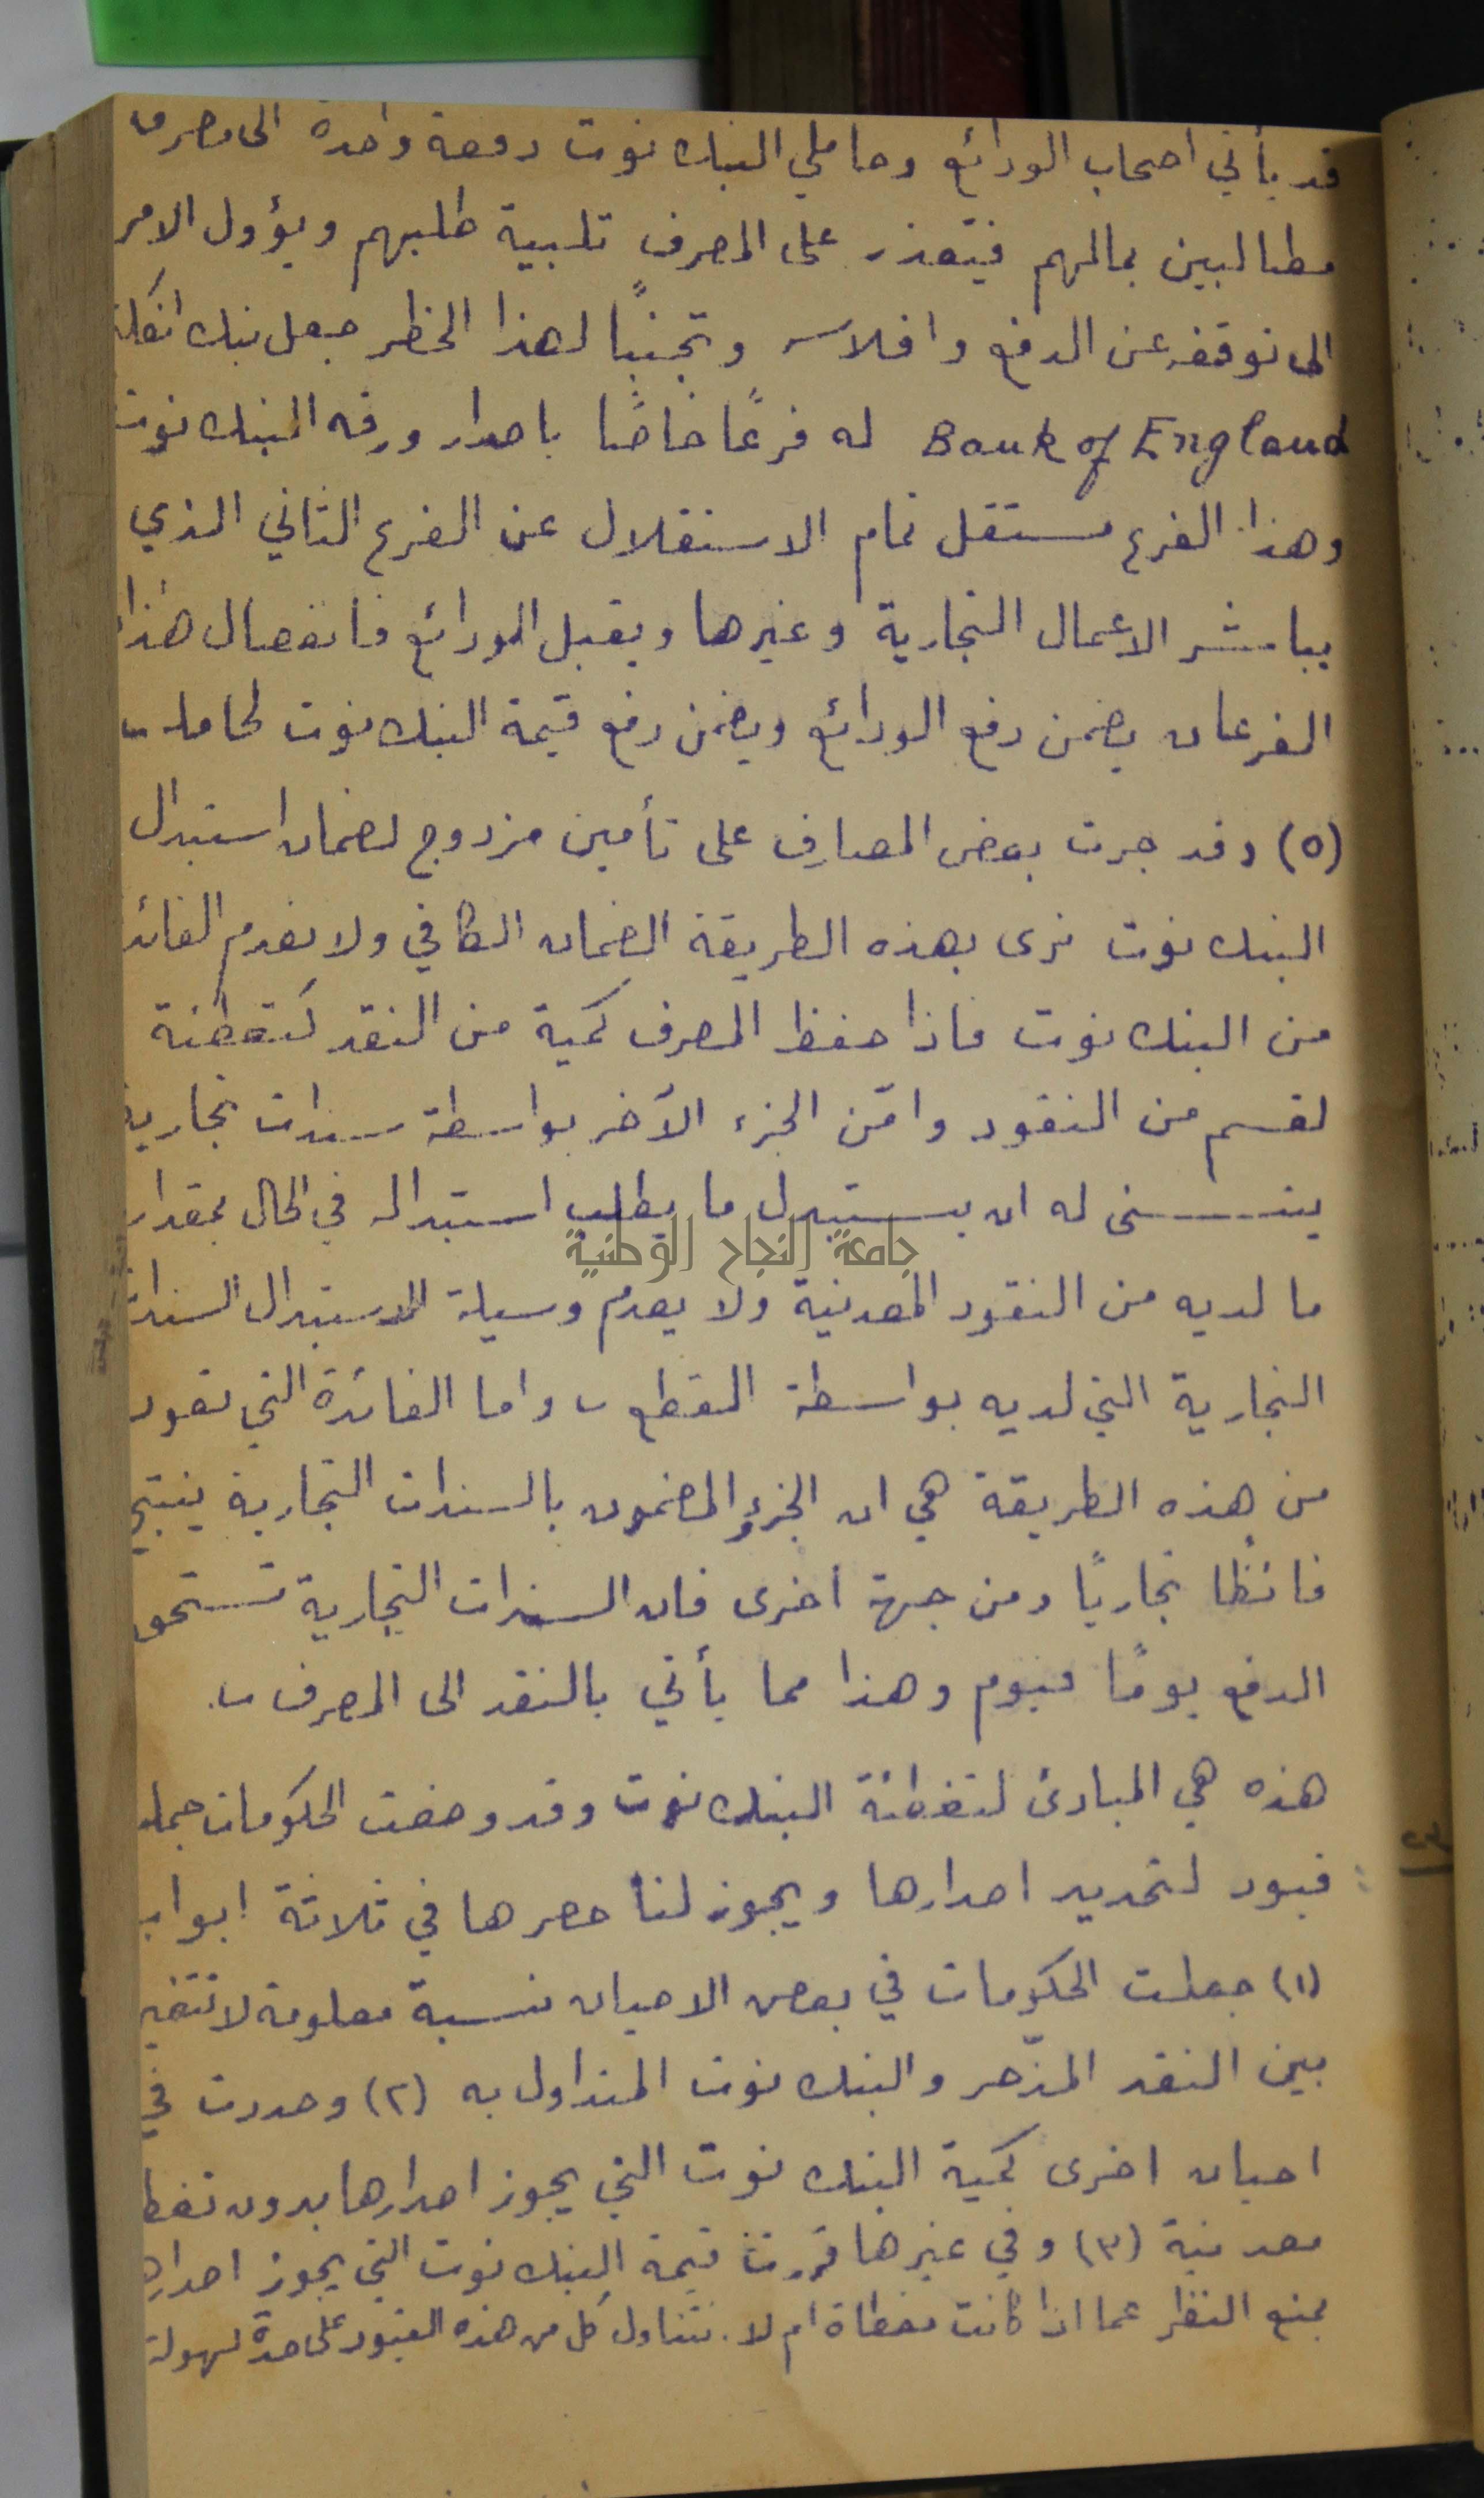 قد يأتي اصحاب الودائع وحاملي البنك نوت دفعة واحدة الى مصرف
مطالبين بمالهم فيتعذر على المصرف تلبية طلبهم ويؤول الامر
الى توقفه عن الدفع وافلاسه وتجنبًا لهذا الخطر جعل بنك انكلترا
Bank of England له فرعًا خاصًا باصدار ورقه البنك نوت
وهذا الفرع مستقل تمام الاستقلال عن الفرع الثاني الذي
يباشر الاعمال التجارية وغيرها ويقبل الودائع فانفصال هذا
الفرعان يضمن دفع الودائع ويضمن دفع قيمة البنك نوت لحامله
(٥) وقد جرت بعض المصارف على تأمين مزدوج لضمان استبدال
البنك نوت نرى بهذه الطريقة الضمان الكافي ولا نعدم الفائدة
من البنك نوت فاذا حفظ المصرف كمية من النقد كتغطئة
لقسم من النقود وامّن الجزء الآخر بواسطة سندات تجارية
يتسنى له ان يستبدل ما يطلب استبداله في الحال بمقدار
جامعة النجاح الوطنية
ما لديه من النقود المعدنية ولا يعدم وسيلة لاستبدال السندات
التجارية التي لديه بواسطة القطع واما الفائدة التي تعود
من هذه الطريقة هي ان الجزء المضمون بالسندات التجارية ينتج
فائظًا تجاريًا ومن جهة اخرى فان السندات التجارية تستحق
الدفع يومًا فيوم وهذا مما يأتي بالنقد الى المصرف.
هذه هي المبادئ لتغطئة البنك نوت وقد وضعت الحكومات جملة
قيود لتحديد اصدارها ويجوز لنا حصرها في ثلاثة ابواب
(١) جعلت الحكومات في بعض الاحيان نسبة معلومة لا تتغير
بين النقد المدّخر والبنك نوت المتداول به (٢) وحددت في
احيان اخرى كمية البنك نوت التي يجوز اصدارها بدون تغطية
معدنية (٣) وفي غيرها قررت قيمة البنك نوت التي يجوز اصدارها
بمنع النظر عما اذا كانت مغطاة ام لا. نتناول كل من هذه القيود على حدة لسهولة